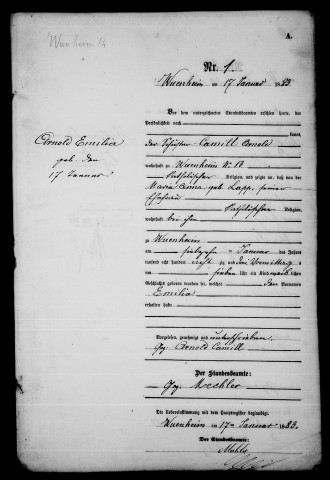 Wuenheim
A.
Nr. 1.
Wuenheim am 17 Januar 1883
Vor dem unterzeichneten Standesbeamten erschien heute, der
Persönlichkeit nach
kannt,
Arnold Emilia
geb. den
17 Januar
der Camill Arnold
wohnhaft zu Wuenheim
katholischer Religion, und zeigte an, daß von der
Maria Anna geb. Lapp, seiner
Ehefrau
katholischer Religion,
wohnhaft bei ihm
zu Wuenheim
am siebzehn Januar des Jahres
tausend acht hundert achtzig und drei Vormittags
um sieben Uhr ein Kind weib lichen
Geschlechts geboren worden sei, welches den Vornamen
Emilia
erhalten habe
Vorgelesen, genehmigt und unterschrieben
Gez. Arnold Camill
Der Standesbeamte:
Gez. Mechler
Die Uebereinstimmung mit dem Hauptregister beglaubigt
Wuenheim am 17ten Januar 1883.
Der Standesbeamte: